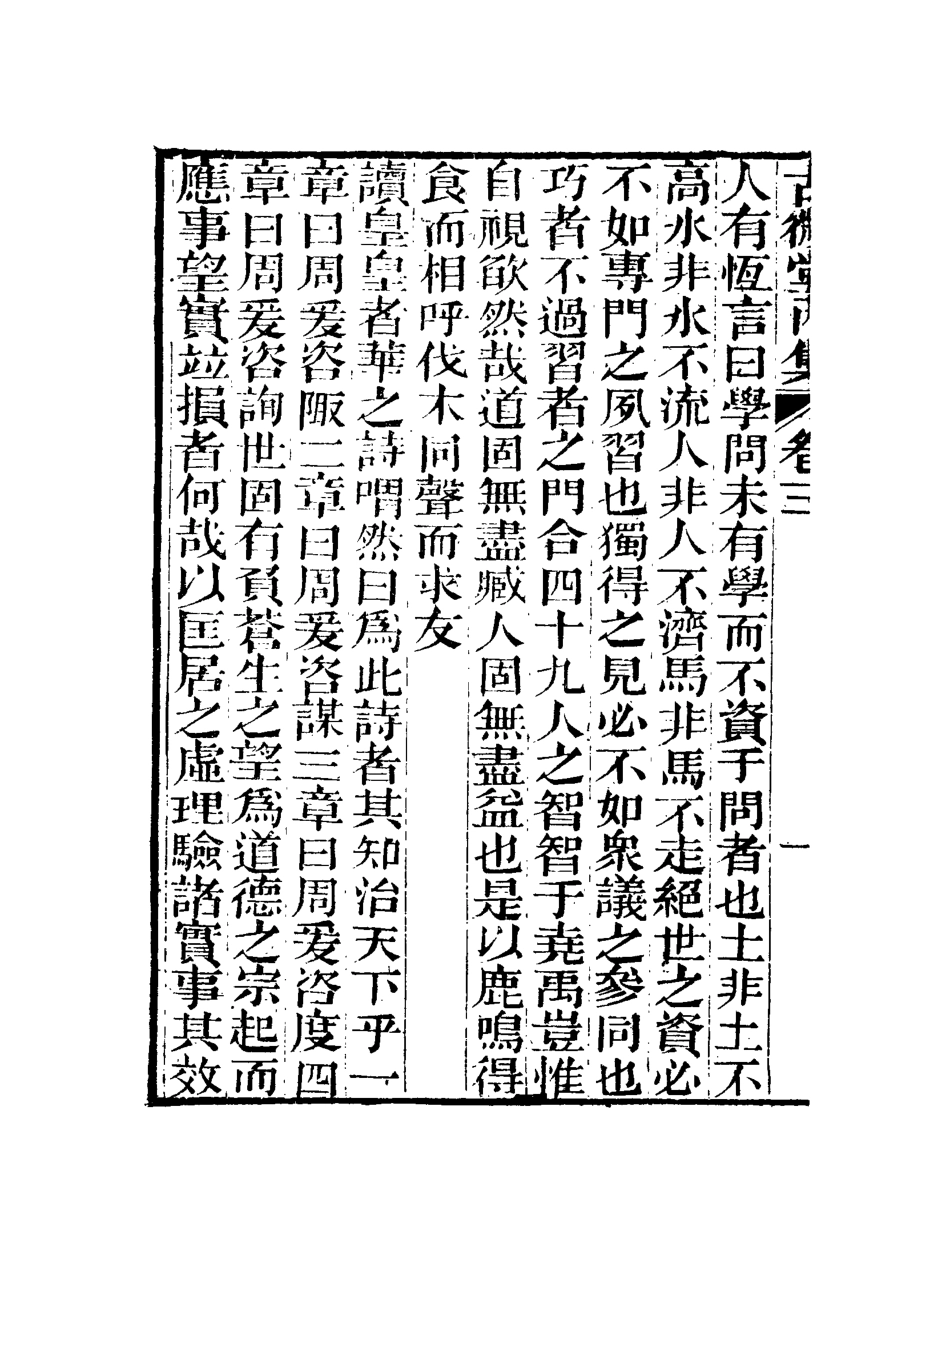 古微堂內集 卷三 一
人有恆言曰學問未有學而不資于問者也土非土不
高水非水不流人非人不濟馬非馬不走絕世之資必
不如專門之夙習也獨得之見必不如衆議之參同也
巧者不過習者之門合四十九人之智智于堯禹豈惟
自視欿然哉道固無盡臧人固無盡益也是以鹿鳴得
食而相呼伐木同聲而求友
讀皇皇者華之詩喟然曰爲此詩者其知治天下乎一
章曰周爰咨陬二章曰周爰咨謀三章曰周爰咨度四
章曰周爰咨詢世固有負蒼生之望爲道德之宗起而
應事望實竝損者何哉以匡居之虛理驗諸實事其效